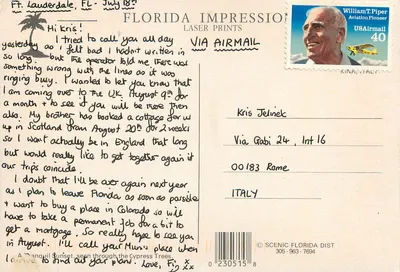 Ft. Lauderdale, FL - July 18th
FLORIDA IMPRESSION
LASER PRINTS
VIA AIRMAIL
William T. Piper
Aviation Pioneer
USAirmail
40
Hi Kris!
I tried to call you all day
yesterday as I felt bad I hadn't written in
so long – but the operator told me there was
something wrong with the lines as it was
ringing busy. I wanted to let you know that
I am coming over to the U.K. August 9th for
a month & to see if you will be there then
also. My brother has booked a cottage for us
up in Scotland from August 20th for 2 weeks
so I won't actually be in England that long
but would really like to get together again if
our trips coincide.
I doubt that I'll be over again next year
as I plan to leave Florida as soon as possible
& want to buy a place in Colorado so will
have to take a permanent job for a bit to
get a mortgage. So really hope to see you
in August. I'll call your Mum's place when
I arrive to find out your plans. Love,
xx
A Tranquil Sunset, seen through the Cypress Trees.
Kris Jelinek
Via Gabi 24, Int 16
00183 Rome
ITALY
0 230515 8
© SCENIC FLORIDA DIST
305-963-7694